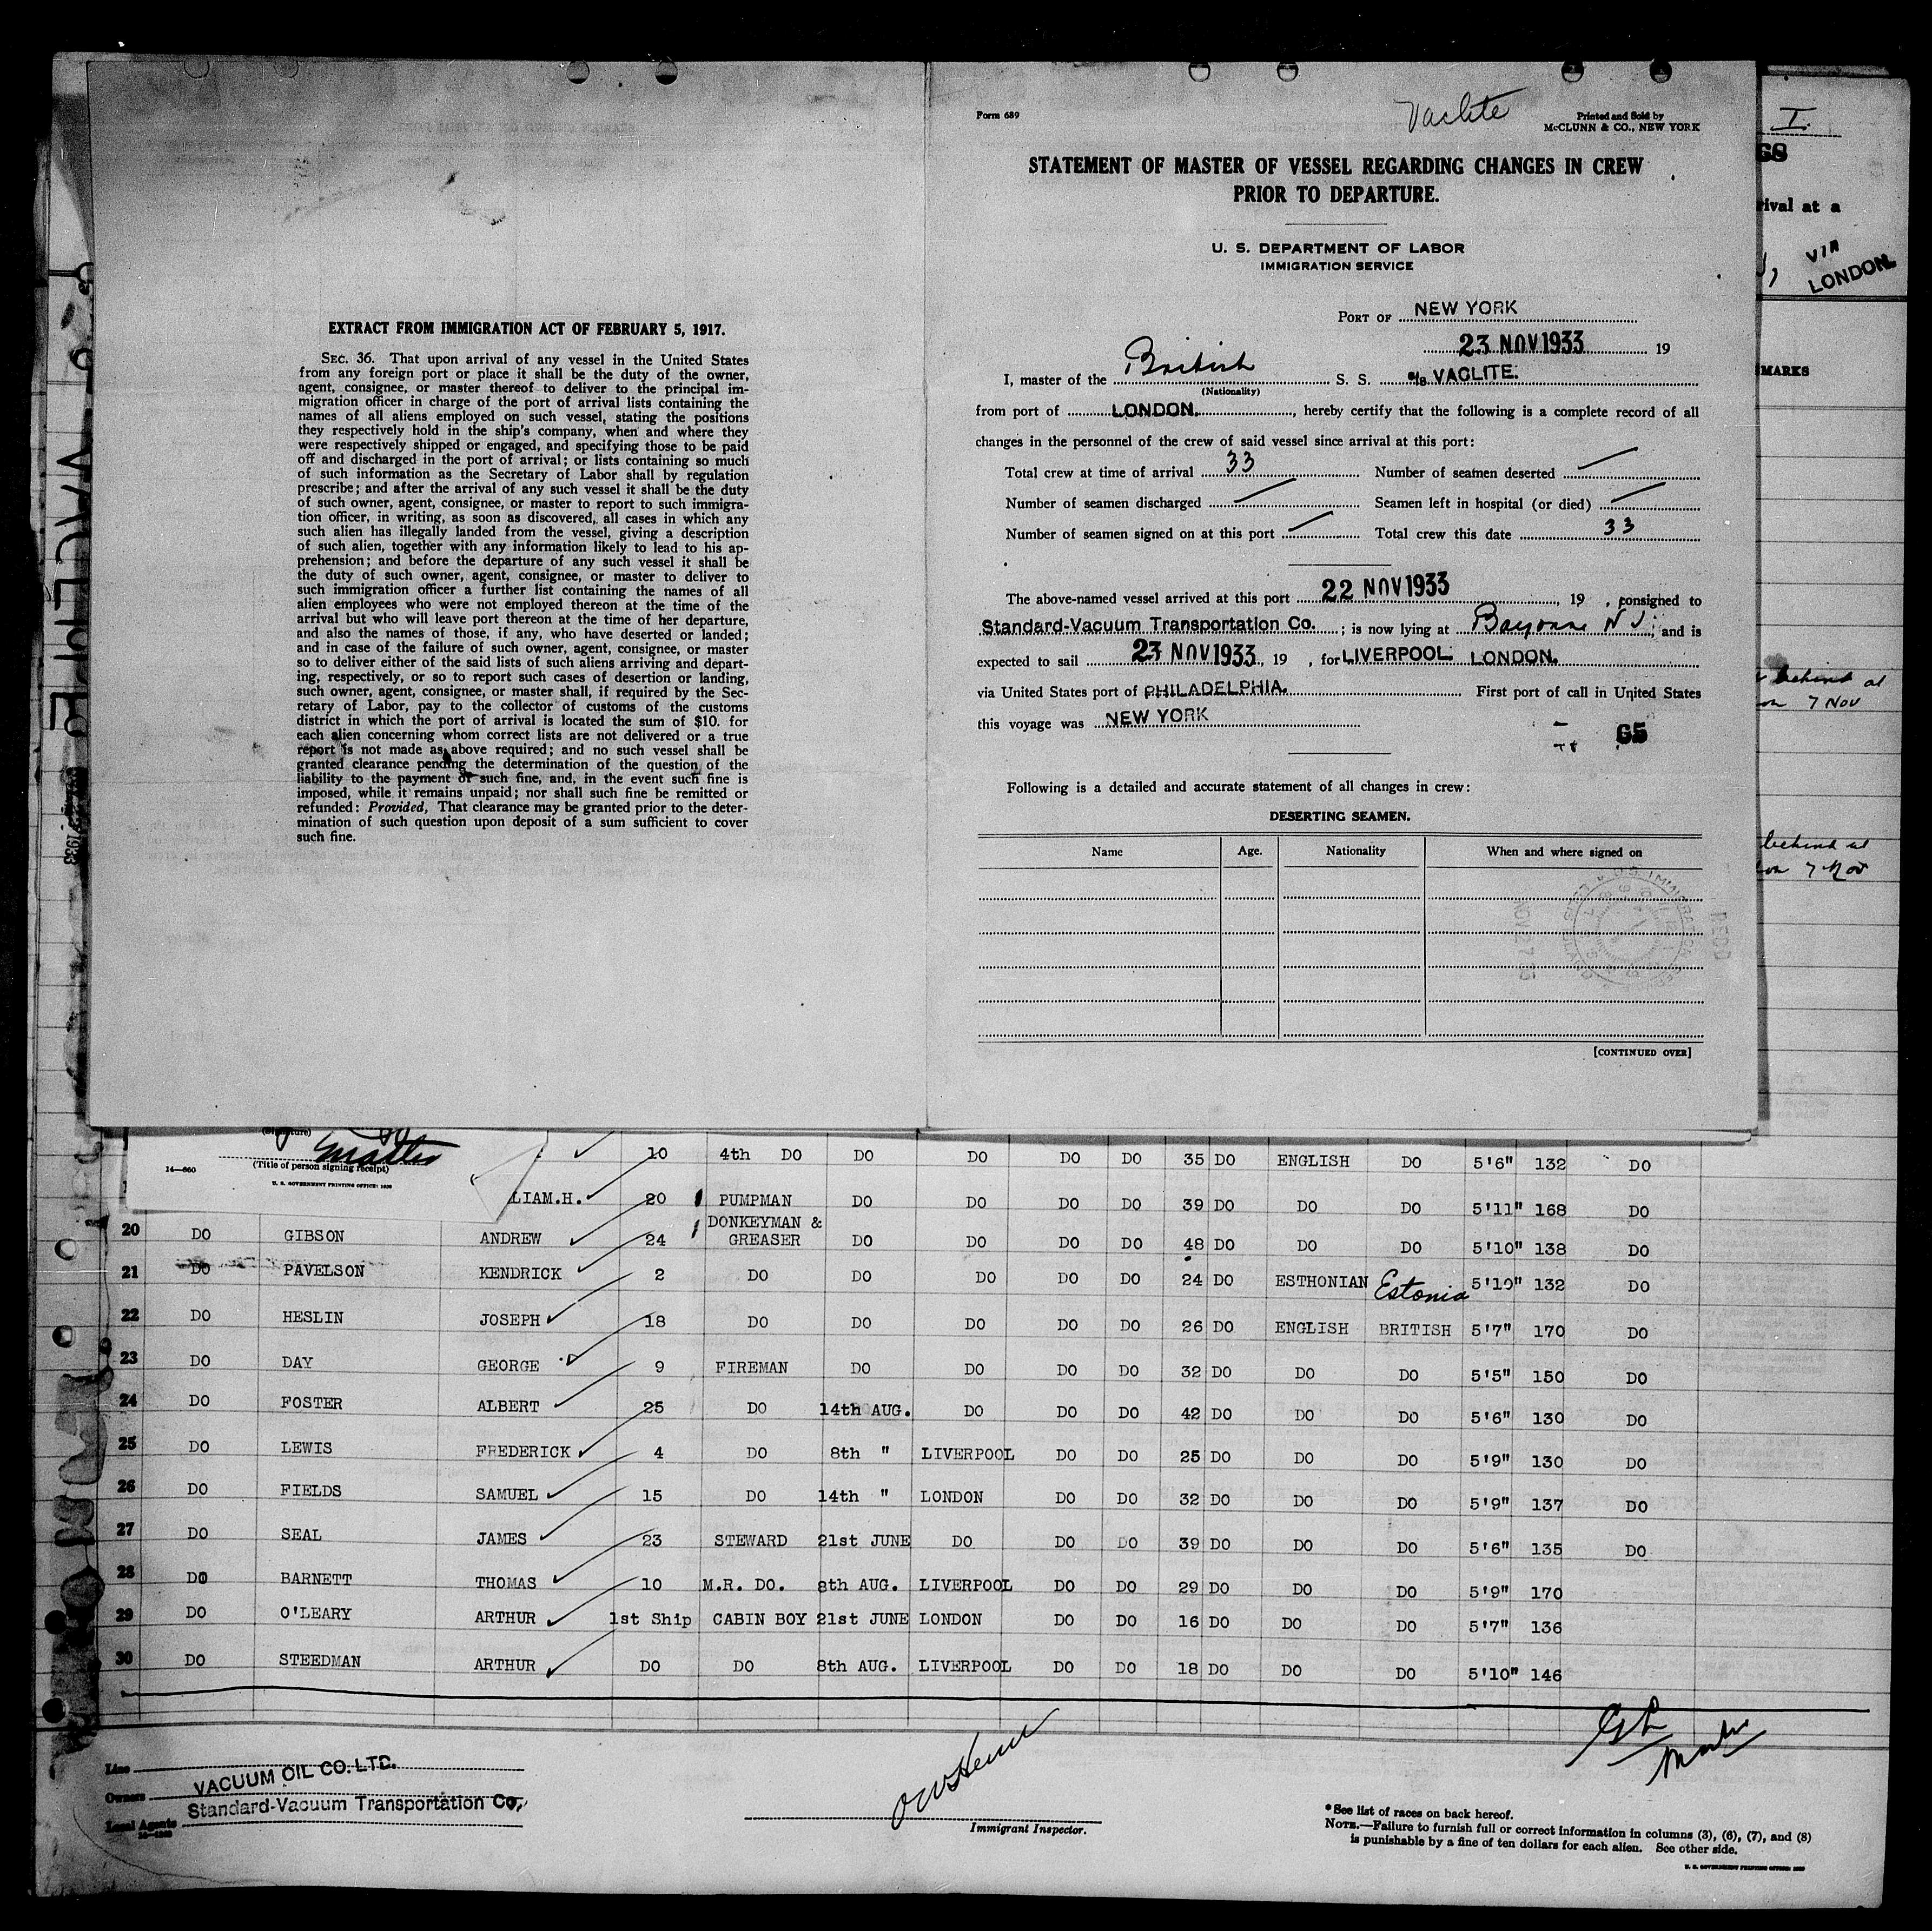 Form 689
Vaclite
Printed and Sold by
McCLUNN & CO., NEW YORK
STATEMENT OF MASTER OF VESSEL REGARDING CHANGES IN CREW
PRIOR TO DEPARTURE.
U. S. DEPARTMENT OF LABOR
IMMIGRATION SERVICE
PORT OF NEW YORK
23 NOV 1933 19
I, master of the British S. S. VACLITE.
(Nationality)
from port of LONDON., hereby certify that the following is a complete record of all
changes in the personnel of the crew of said vessel since arrival at this port:
Total crew at time of arrival 33 Number of seamen deserted
Number of seamen discharged Seamen left in hospital (or died)
Number of seamen signed on at this port Total crew this date 33
The above-named vessel arrived at this port 22 NOV 1933, 19 , consigned to
Standard-Vacuum Transportation Co. ; is now lying at Bayonne N J; and is
expected to sail 23 NOV 1933, 19 , for LIVERPOOL. LONDON.
via United States port of PHILADELPHIA. First port of call in United States
this voyage was NEW YORK
65
Following is a detailed and accurate statement of all changes in crew:
DESERTING SEAMEN.
Name Age. Nationality When and where signed on
[CONTINUED OVER]
EXTRACT FROM IMMIGRATION ACT OF FEBRUARY 5, 1917.
SEC. 36. That upon arrival of any vessel in the United States
from any foreign port or place it shall be the duty of the owner,
agent, consignee, or master thereof to deliver to the principal im-
migration officer in charge of the port of arrival lists containing the
names of all aliens employed on such vessel, stating the positions
they respectively hold in the ship's company, when and where they
were respectively shipped or engaged, and specifying those to be paid
off and discharged in the port of arrival; or lists containing so much
of such information as the Secretary of Labor shall by regulation
prescribe; and after the arrival of any such vessel it shall be the duty
of such owner, agent, consignee, or master to report to such immigra-
tion officer, in writing, as soon as discovered, all cases in which any
such alien has illegally landed from the vessel, giving a description
of such alien, together with any information likely to lead to his ap-
prehension; and before the departure of any such vessel it shall be
the duty of such owner, agent, consignee, or master to deliver to
such immigration officer a further list containing the names of all
alien employees who were not employed thereon at the time of the
arrival but who will leave port thereon at the time of her departure,
and also the names of those, if any, who have deserted or landed;
and in case of the failure of such owner, agent, consignee, or master
so to deliver either of the said lists of such aliens arriving and depart-
ing, respectively, or so to report such cases of desertion or landing,
such owner, agent, consignee, or master shall, if required by the Sec-
retary of Labor, pay to the collector of customs of the customs
district in which the port of arrival is located the sum of $10. for
each alien concerning whom correct lists are not delivered or a true
report is not made as above required; and no such vessel shall be
granted clearance pending the determination of the question of the
liability to the payment of such fine, and, in the event such fine is
imposed, while it remains unpaid; nor shall such fine be remitted or
refunded: Provided, That clearance may be granted prior to the deter-
mination of such question upon deposit of a sum sufficient to cover
such fine.
I.
68
rival at a
VIA
LONDON.
MARKS
behind at
7 Nov
behind at
7 Nov
(Signature)
Master
14—660 (Title of person signing receipt)
U. S. GOVERNMENT PRINTING OFFICE:
10 4th DO DO DO DO DO 35 DO ENGLISH DO 5'6" 132 DO
LIAM.H. 20 PUMPMAN DO DO DO DO 39 DO DO DO 5'11" 168 DO
20 DO GIBSON ANDREW 24 DONKEYMAN & GREASER DO DO DO DO 48 DO DO DO 5'10" 138 DO
21 DO PAVELSON KENDRICK 2 DO DO DO DO DO 24 DO ESTHONIAN Estonia 5'10" 132 DO
22 DO HESLIN JOSEPH 18 DO DO DO DO DO 26 DO ENGLISH BRITISH 5'7" 170 DO
23 DO DAY GEORGE 9 FIREMAN DO DO DO DO 32 DO DO DO 5'5" 150 DO
24 DO FOSTER ALBERT 25 DO 14th AUG. DO DO DO 42 DO DO DO 5'6" 130 DO
25 DO LEWIS FREDERICK 4 DO 8th " LIVERPOOL DO DO 25 DO DO DO 5'9" 130 DO
26 DO FIELDS SAMUEL 15 DO 14th " LONDON DO DO 32 DO DO DO 5'9" 137 DO
27 DO SEAL JAMES 23 STEWARD 21st JUNE DO DO DO 39 DO DO DO 5'6" 135 DO
28 DO BARNETT THOMAS 10 M.R. DO. 8th AUG. LIVERPOOL DO DO 29 DO DO DO 5'9" 170
29 DO O'LEARY ARTHUR 1st Ship CABIN BOY 21st JUNE LONDON DO DO 16 DO DO DO 5'7" 136
30 DO STEEDMAN ARTHUR DO DO 8th AUG. LIVERPOOL DO DO 18 DO DO DO 5'10" 146
Line
Owners VACUUM OIL CO. LTD.
Local Agents Standard-Vacuum Transportation Co.
Immigrant Inspector.
*See list of races on back hereof.
NOTE.—Failure to furnish full or correct information in columns (3), (6), (7), and (8)
is punishable by a fine of ten dollars for each alien. See other side.
U. S. GOVERNMENT PRINTING OFFICE: